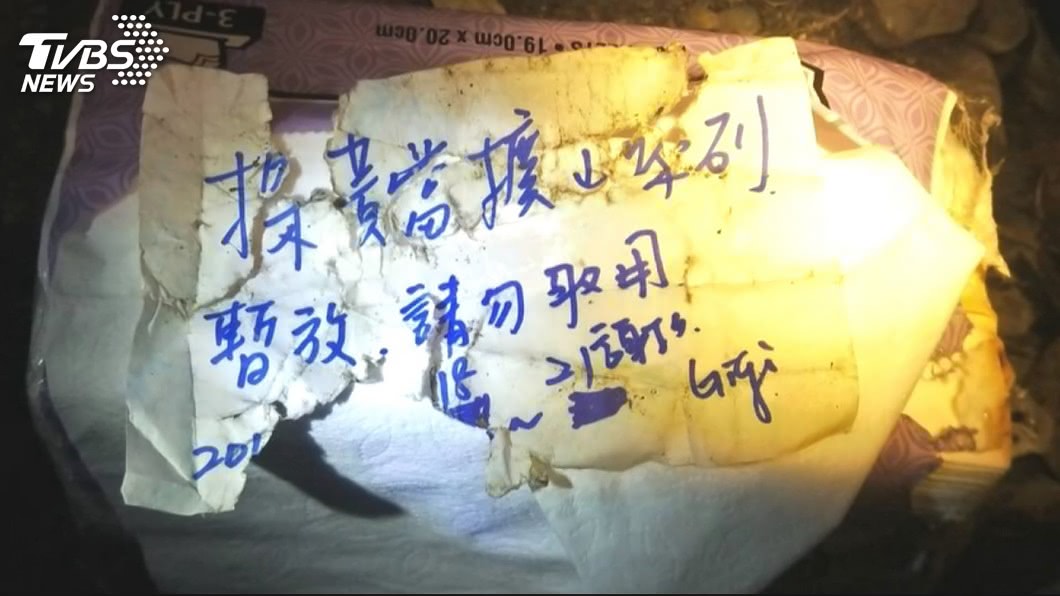 TVBS
NEWS
3-PLY
19.0cm x 20.0cm
黃當擴山 列
暫放, 請勿取用
201 18 ~ 21 Gigi